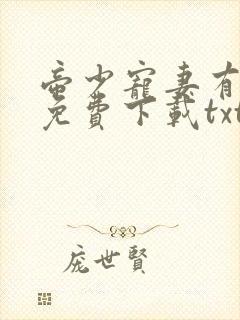 蛮少寵妻有
免費下載txt
庞世賢